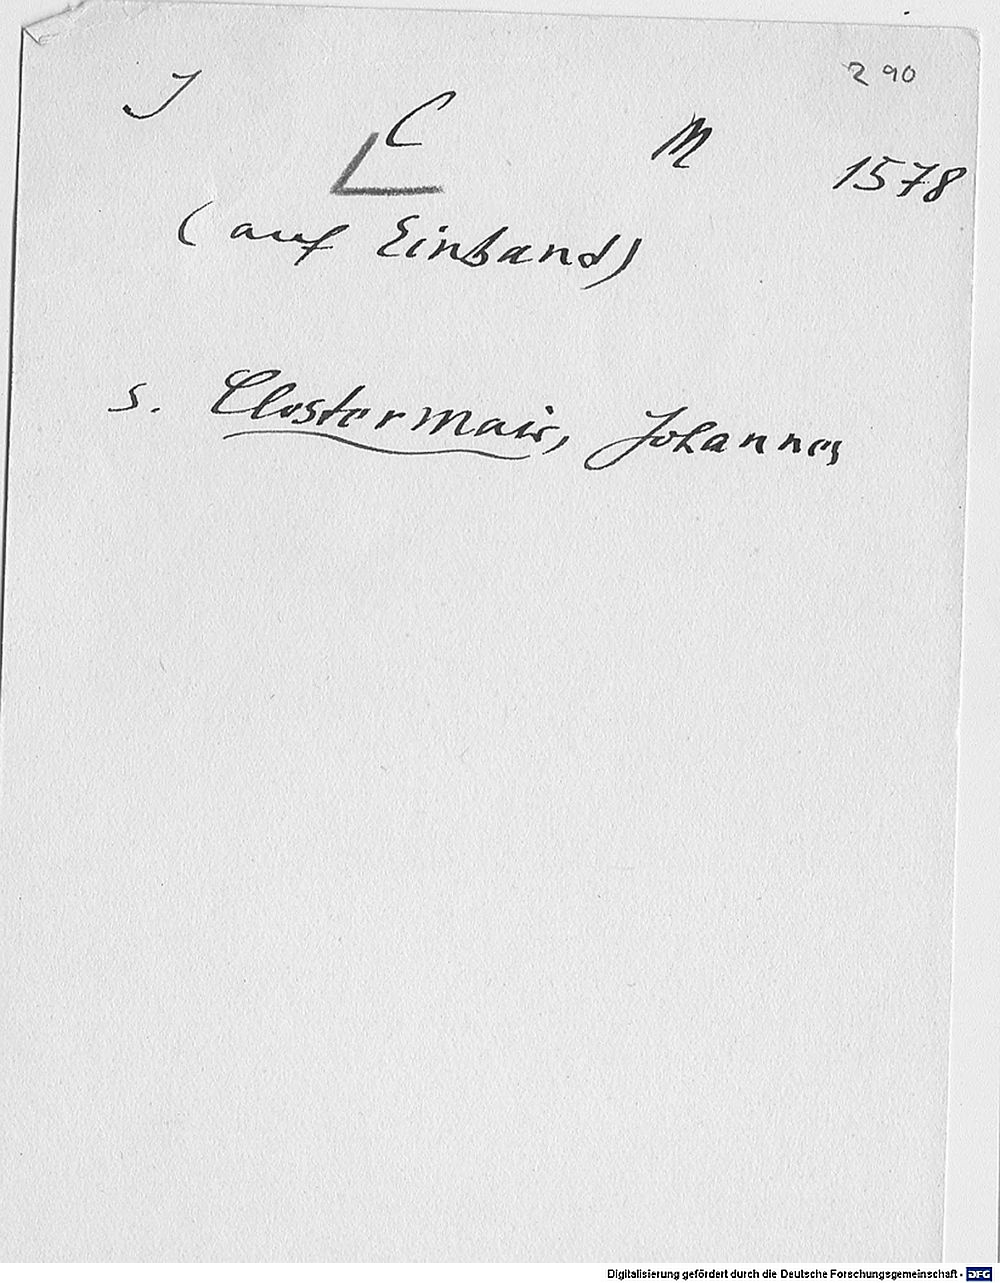 290
J C M 1578
(auf Einband)
s. Clostermair, Johannes
Digitalisierung gefördert durch die Deutsche Forschungsgemeinschaft - DFG